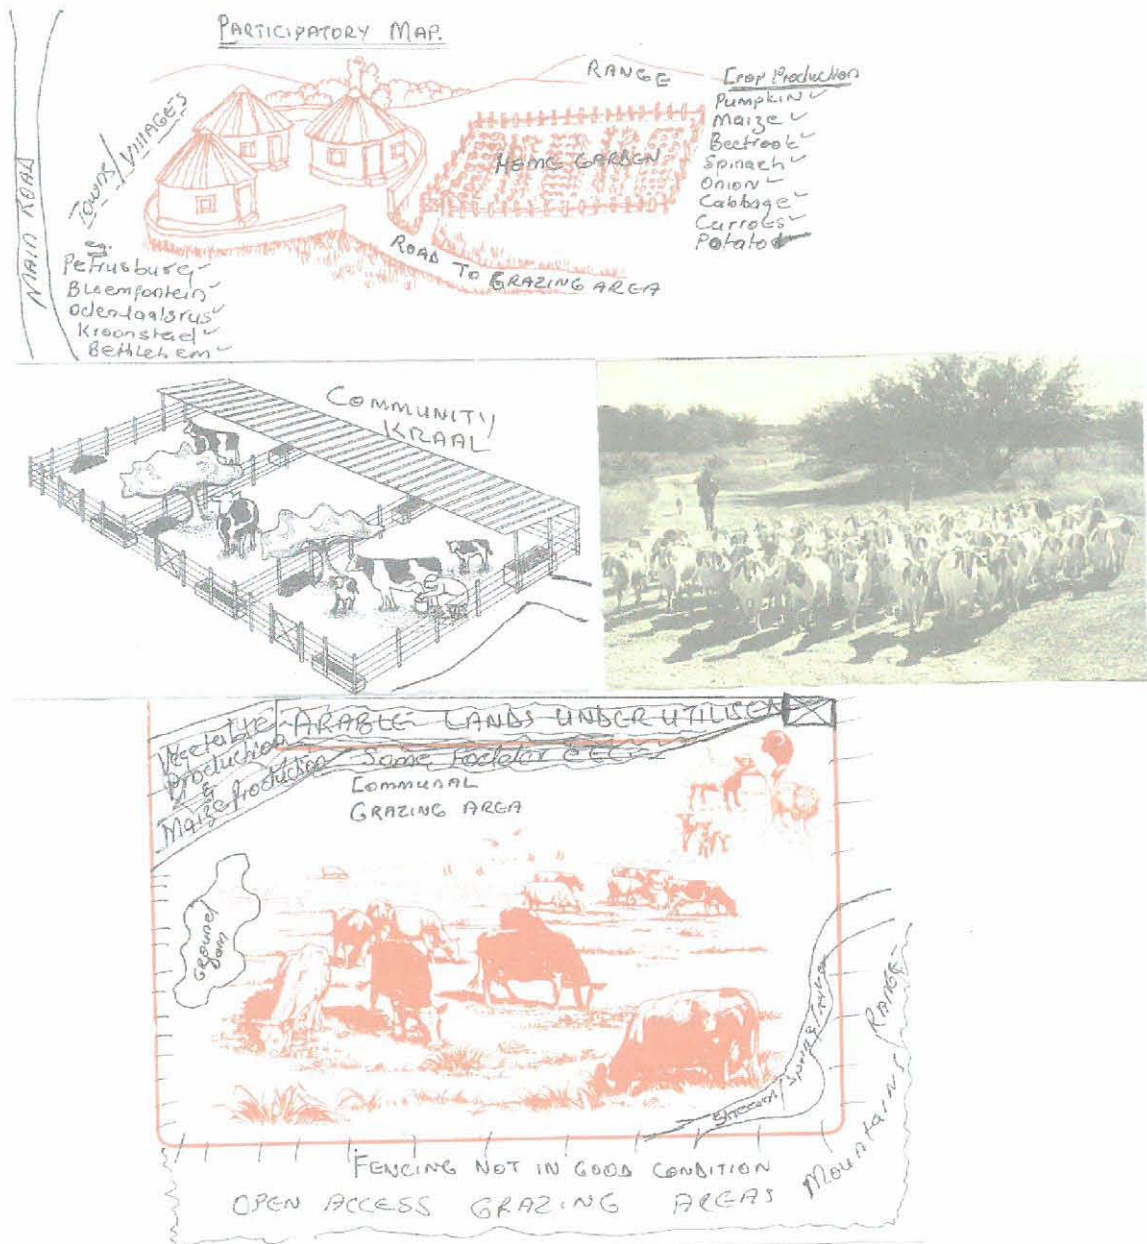 PARTICIPATORY MAP.
MAIN ROAD
TOWNS/VILLAGES
eg.
Petrusburg
Bloemfontein
Odendaalsrus
Kroonstad
Bethlehem
RANGE
HOME GARDEN
ROAD TO GRAZING AREA
Crop Production
Pumpkin
Maize
Beetroot
Spinach
Onion
Cabbage
Carrots
Potato
COMMUNITY
KRAAL
Vegetable
Production
&
Maize Production
ARABLE LANDS UNDER UTILISED
Some Fodder
COMMUNAL
GRAZING AREA
Ground
Dam
Stream/Spring/
Mountains/RANGE
FENCING NOT IN GOOD CONDITION
OPEN ACCESS GRAZING AREAS